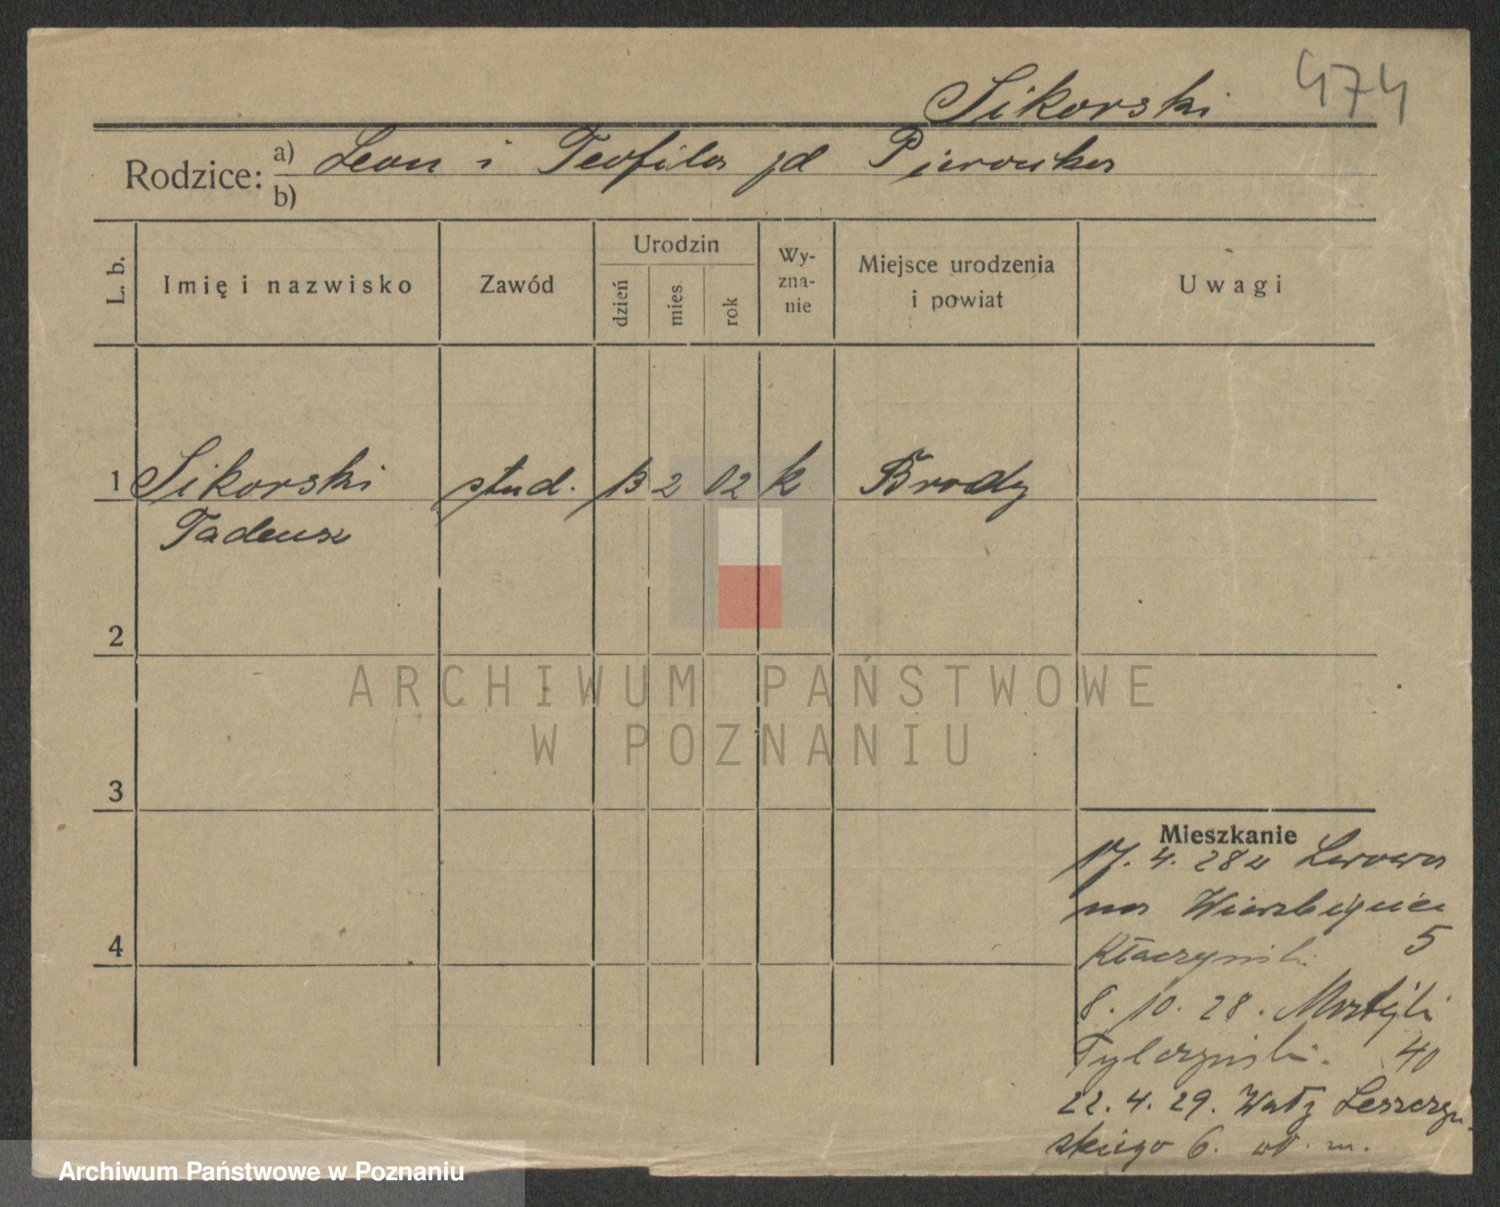 474
Sikorski
Rodzice: a) Leon i Teofila jd
b)
L. b.
Imię i nazwisko
Zawód
Urodzin
dzień
mies.
rok
Wy-
zna-
nie
Miejsce urodzenia
i powiat
Uwagi
1 Sikorski stud. 13 2 02 k Brody
Tadeusz
2
3
4
Mieszkanie
17. 4. 28 z Lwowa
na Wierzbięcice
5
8. 10. 28.
40
22. 4. 29. Wały Leszczyń
skiego 6.
ARCHIWUM PAŃSTWOWE
W POZNANIU
Archiwum Państwowe w Poznaniu